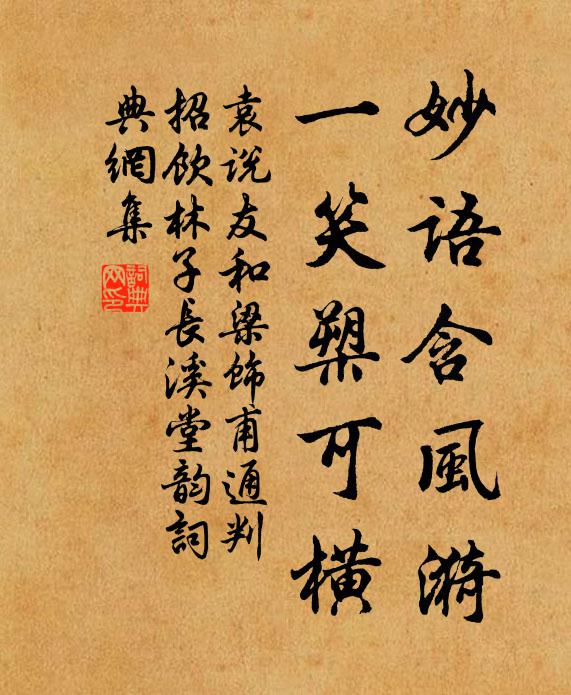 妙語含風漪
一笑槊可橫
袁說友和梁飾甫通判
招飲林子長溪堂韵詞
典網集
詞典网印